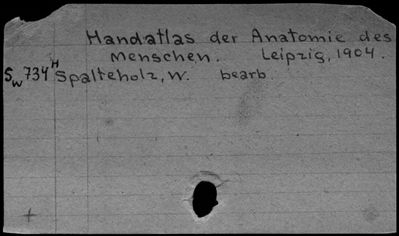 Handatlas der Anatomie des
Menschen. Leipzig, 1904.
Sw 734 H Spalteholz, W. bearb.